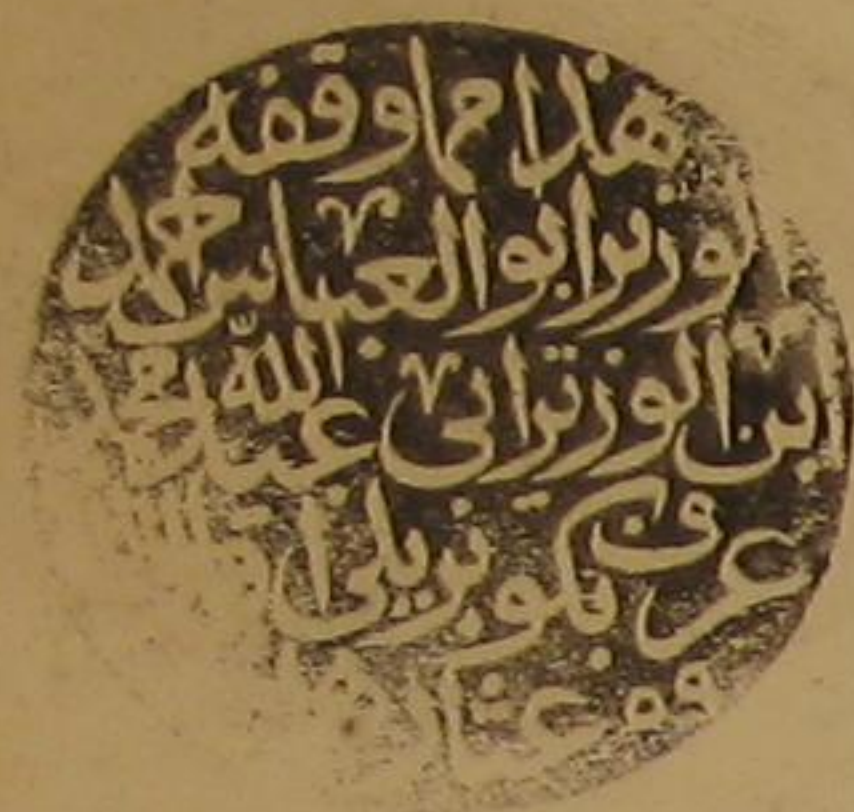 هذا مما وقفه
الوزير ابو العباس احمد
ابن الوزير ابي عبد الله محمد
عرف بكوبريلي
عثارهما